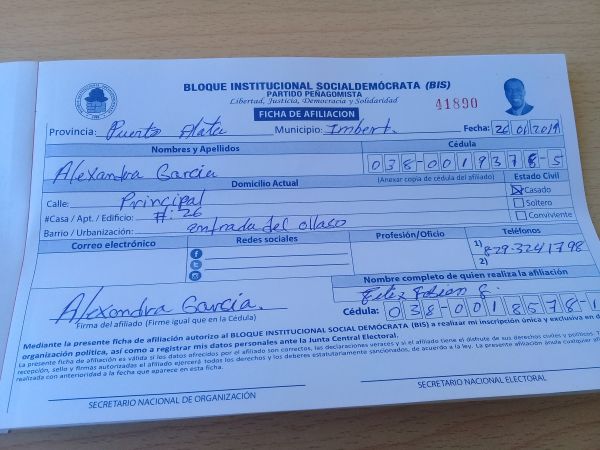 BLOQUE INSTITUCIONAL SOCIALDEMÓCRATA (BIS)
PARTIDO PEÑAGOMISTA
Libertad, Justicia, Democracia y Solidaridad
41890
FICHA DE AFILIACION
Provincia: Puerto Plata Municipio: Imbert. Fecha: 26 01 2019
Nombres y Apellidos Cédula
Alexandra Garcia 038-0019378-5
Domicilio Actual (Anexar copia de cédula del afiliado) Estado Civil
Calle: Principal Casado
#Casa / Apt. / Edificio: #:26 Soltero
Barrio / Urbanización: entrada del Conviviente
Correo electrónico Redes sociales Profesión/Oficio Teléfonos
1) 829-3241798
2)
Nombre completo de quien realiza la afiliación
Alexandra Garcia.
Firma del afiliado (Firme igual que en la Cédula) Cédula: 038-0018578-1
Mediante la presente ficha de afiliación autorizo al BLOQUE INSTITUCIONAL SOCIAL DEMÓCRATA (BIS) a realizar mi inscripción única y exclusiva en
organización política, así como a registrar mis datos personales ante la Junta Central Electoral.
La presente ficha de afiliación es válida si los datos ofrecidos por el afiliado son correctos, las declaraciones veraces y si el afiliado tiene el disfrute de sus derechos civiles y políticos.
recepción, sello y firmas autorizadas el afiliado ejercerá todos los derechos y los deberes estatutariamente sancionados, de acuerdo a la ley. La presente afiliación anula cualquier
realizada con anterioridad a la fecha que aparece en esta ficha.
SECRETARIO NACIONAL DE ORGANIZACIÓN SECRETARIO NACIONAL ELECTORAL